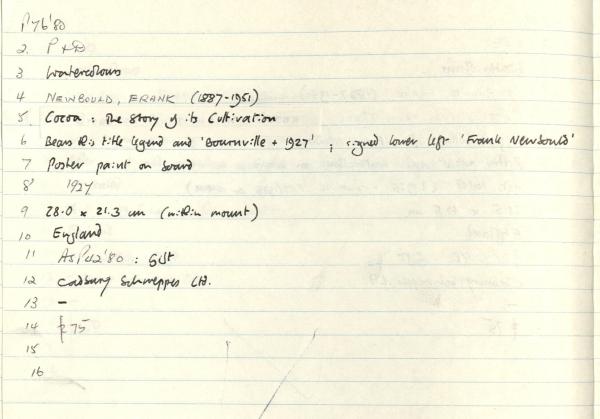 P76'80
2. P & D
3 Watercolours
4 NEWBOULD, FRANK (1887-1951)
5. Cocoa: The Story of its Cultivation
6 Bears this title legend and 'Bournville + 1927'; signed lower left 'Frank Newbould'
7 Poster paint on board
8 1927
9 28.0 x 21.3 cm (within mount)
10 England
11 '80: Gift
12 Cadbury Schweppes Ltd.
13 –
14 £75
15
16